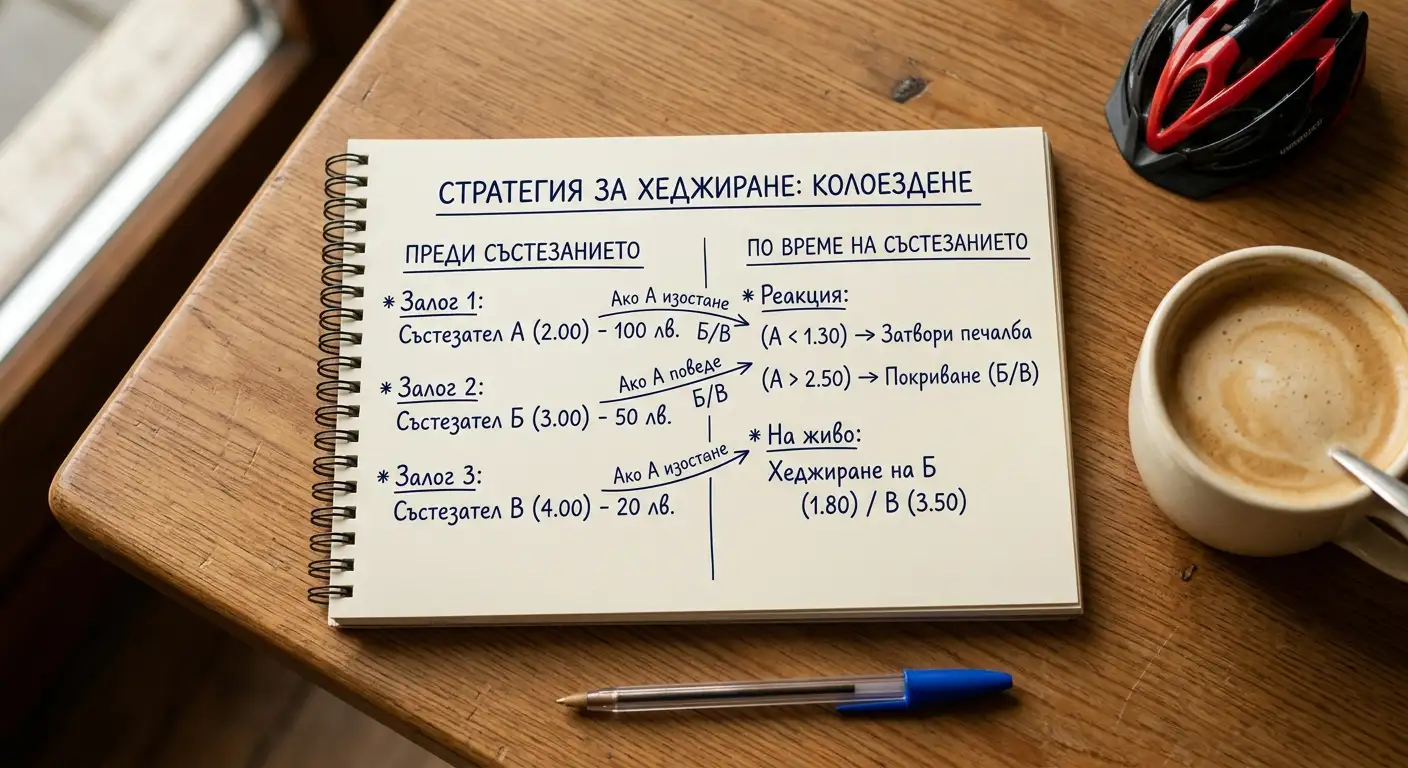 СТРАТЕГИЯ ЗА ХЕДЖИРАНЕ: КОЛОЕЗДЕНЕ
ПРЕДИ СЪСТЕЗАНИЕТО
* Залог 1:
Състезател А (2.00) – 100 лв.
Ако А изостане
Б/В
* Залог 2:
Състезател Б (3.00) – 50 лв.
Ако А поведе
Б/В
* Залог 3:
Състезател В (4.00) – 20 лв.
Ако А изостане
ПО ВРЕМЕ НА СЪСТЕЗАНИЕТО
* Реакция:
(А < 1.30) → Затвори печалба
(А > 2.50) → Покриване (Б/В)
* На живо:
Хеджиране на Б
(1.80) / В (3.50)